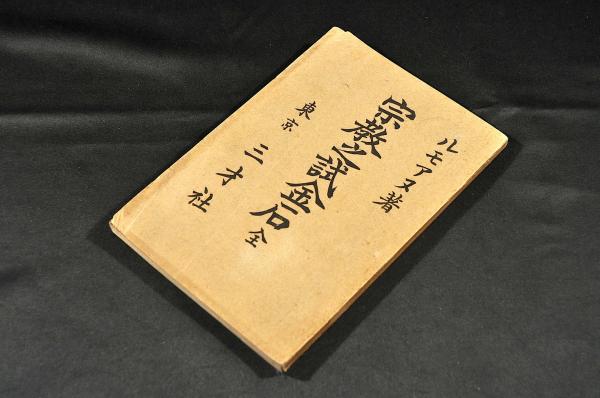 ルモアヌ著
宗教之試金石 全
東京 三才社